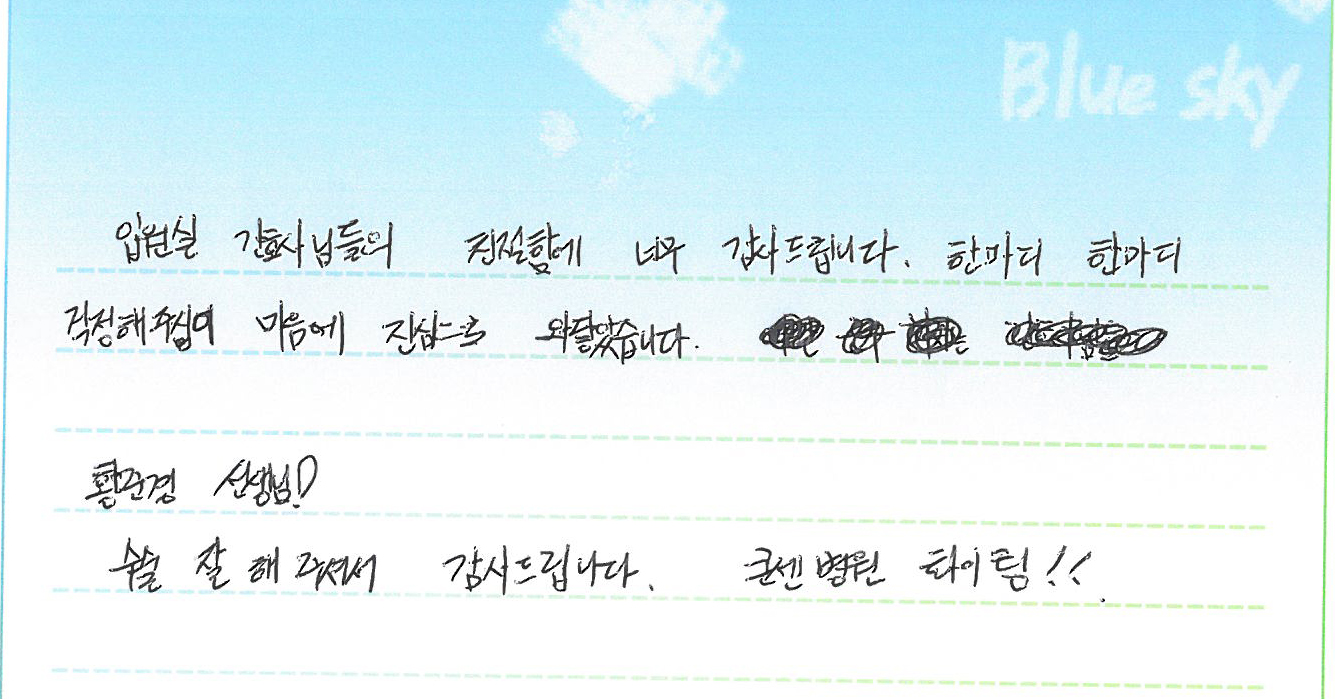 Blue sky
입원실 간호사님들의 친절함에 너무 감사드립니다. 한마디 한마디
걱정해주심에 마음에 진심으로 와닿았습니다.
선생님!
수술 잘 해 주셔서 감사드립니다. 센병원 화이팅!!